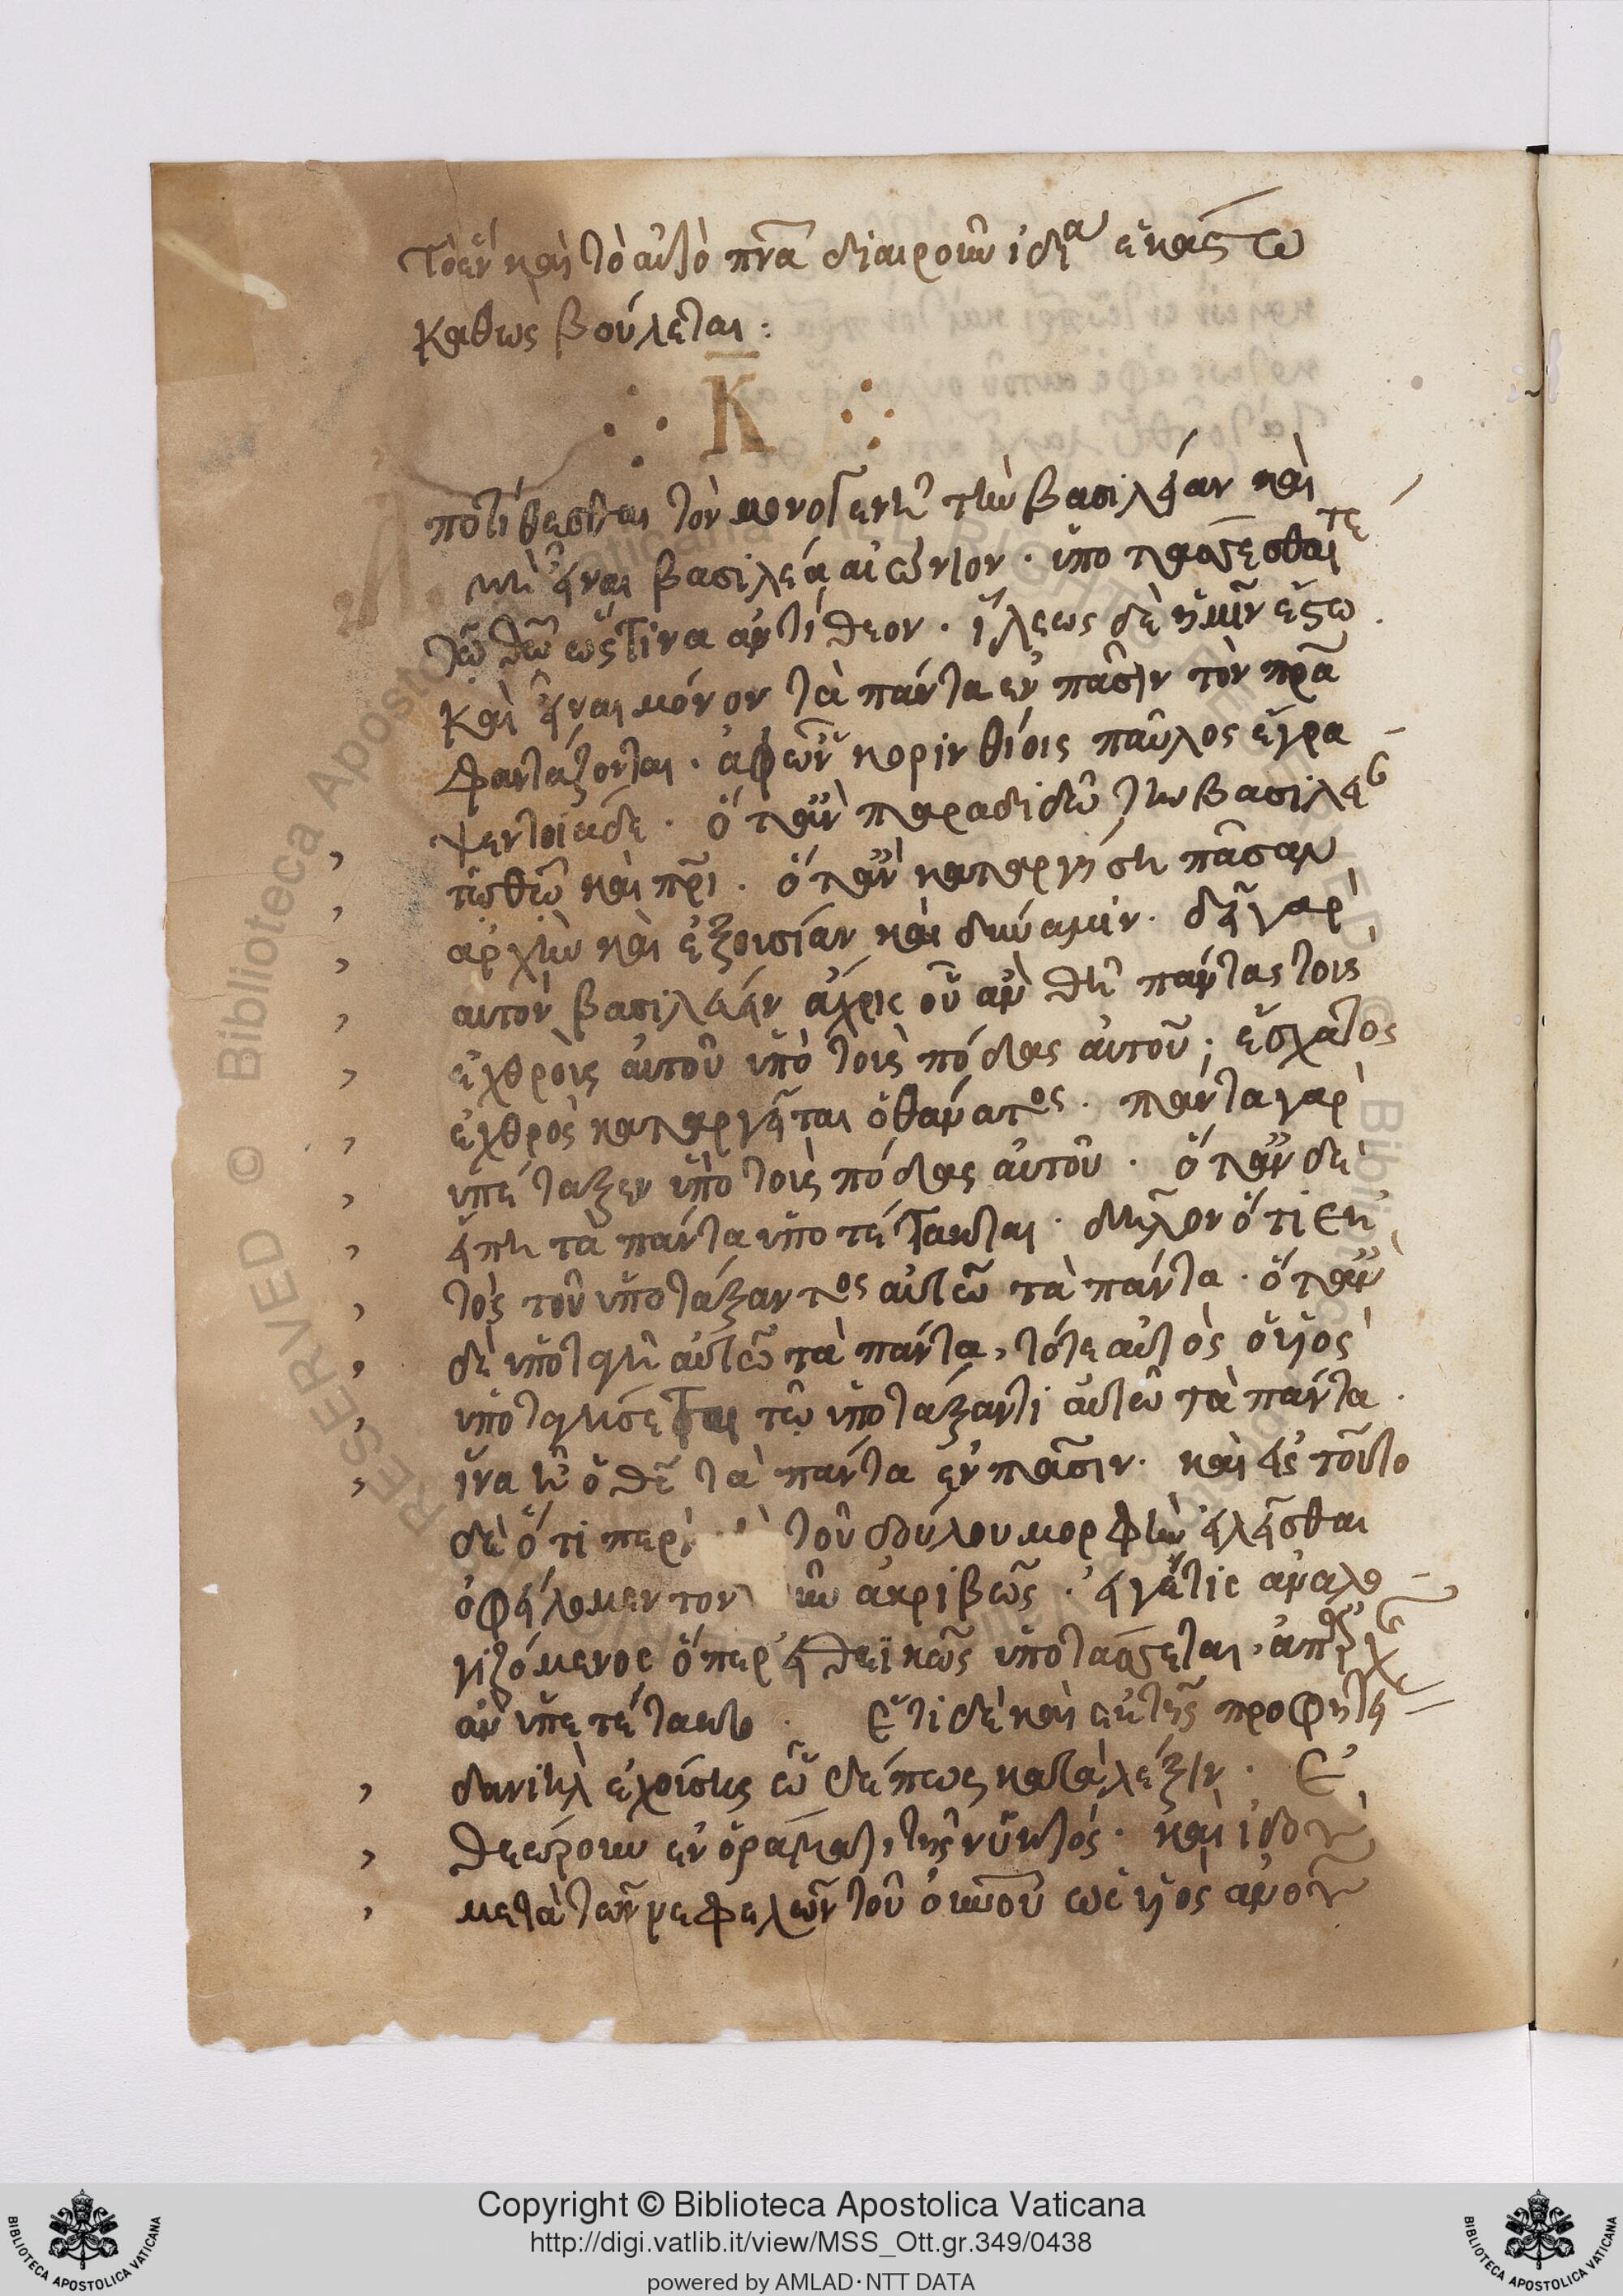 τὸ ἓν καὶ τὸ αὐτὸ πνᾶ διαιροῦν ἰδία ἑκάστω
καθως βούλεται :
Κ̅
ποτίθεσθαι τὸν μονογενῆ τὴν βασιλείαν καὶ
μὴ εἶναι βασιλέα αἰώνιον · ὑποτάσσεσθαί τε
τῶ θῶ ὥς τινα ἀντίθεον · ἵλεως δὲ ἡμῖν ἔξω
καὶ εἶναι μόνον τὰ πάντα ἐν πᾶσιν τὸν πρᾶ
φαντάζονται · ἀφ ὧν κορινθίοις παῦλος ἔγρα
ψεν τοιάδε · ὅταν παραδιδῶ τὴν βασιλεί
τῶ θῶ καὶ πρι · ὅταν καταργήση πᾶσαν
ἀρχὴν καὶ ἐξουσίαν καὶ δύναμιν · δεῖ γαρ
αυτὸν βασιλεύειν ἄχρις οὗ ἂν θῆ πάντας τοὺς
ἐχθροὺς αὐτοῦ ὑπὸ τοὺς πόδας αὐτοῦ · ἔσχατος
ἐχθρὸς καταργεῖται ὁ θάνατος · πάντα γαρ
ὑπέταξεν ὑπὸ τοὺς πόδας αὐτοῦ · ὅταν δὲ
εἴπη τὰ πάντα ὑποτέτακται · δῆλον ὅτι ἐκ
τὸς τοῦ ὑποτάξαντος αὐτῶ τὰ πάντα · ὅταν
δὲ ὑποταγῆ αὐτῶ τὰ πάντα, τότε αὐτὸς ὁ υἱὸς
ὑποταγήσεται τῶ ὑποτάξαντι αὐτῶ τὰ πάντα ·
ἵνα ἦ ὁ θς τὰ πάντα ἐν πᾶσιν · καὶ εἰς τοῦτο
δὲ ὅτι περὶ τοῦ δούλου μορφὴν εἰλῆσθαι
ὀφείλομεν τὸν ἀκριβῶς · εἴ γέ τις ἀναλο
γιζόμενος ὅπερ εἰ θεϊκῶς ὑποτάσσεται,
ἂν ὑπετέτακτο · Ἔτι δὲ καὶ ἐκ τῆς προφητεί
δανιὴλ ἐχρήσης ὧδέ πως κατὰ λέξιν · Ἐ
θεώρουν ἐν ὁράματι τῆς νυκτός · καὶ ἰδοὺ
μετὰ τῶν νεφελῶν τοῦ οὐνοῦ ὡς υἱὸς ἀνοῦ
RESERVED © Biblioteca Apostolica Vaticana ALL RIGHTS RESERVED © Biblioteca
Copyright © Biblioteca Apostolica Vaticana
http://digi.vatlib.it/view/MSS_Ott.gr.349/0438
powered by AMLAD·NTT DATA
BIBLIOTECA APOSTOLICA VATICANA
BIBLIOTECA APOSTOLICA VATICANA